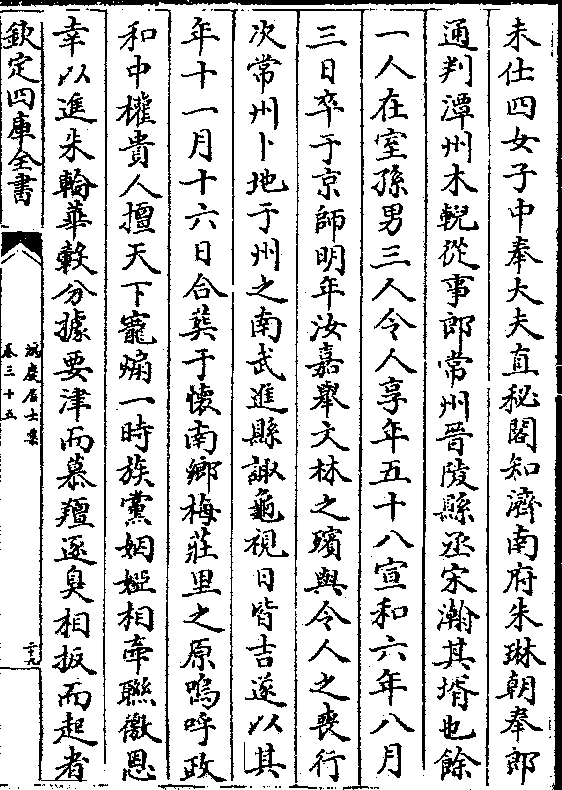 未仕四女子中奉大夫直秘閣知濟南府朱琳朝奉郎
通判潭州木輗從事郎常州晉陵縣丞宋瀚其壻也餘
一人在室孫男三人令人享年五十八宣和六年八月
三日卒于京師明年汝嘉舉文林之殯與令人之喪行
次常州卜地于州之南武進縣諏龜視日皆吉遂以其
年十一月十六日合葬于懷南鄉梅莊里之原嗚呼政
和中權貴人擅天下寵煽一時族黨姻婭相牽聯徼恩
幸以進朱輪華轂分據要津而慕羶逐臭相扳而起者
欽定四庫全書
鴻慶居士集
卷三十五